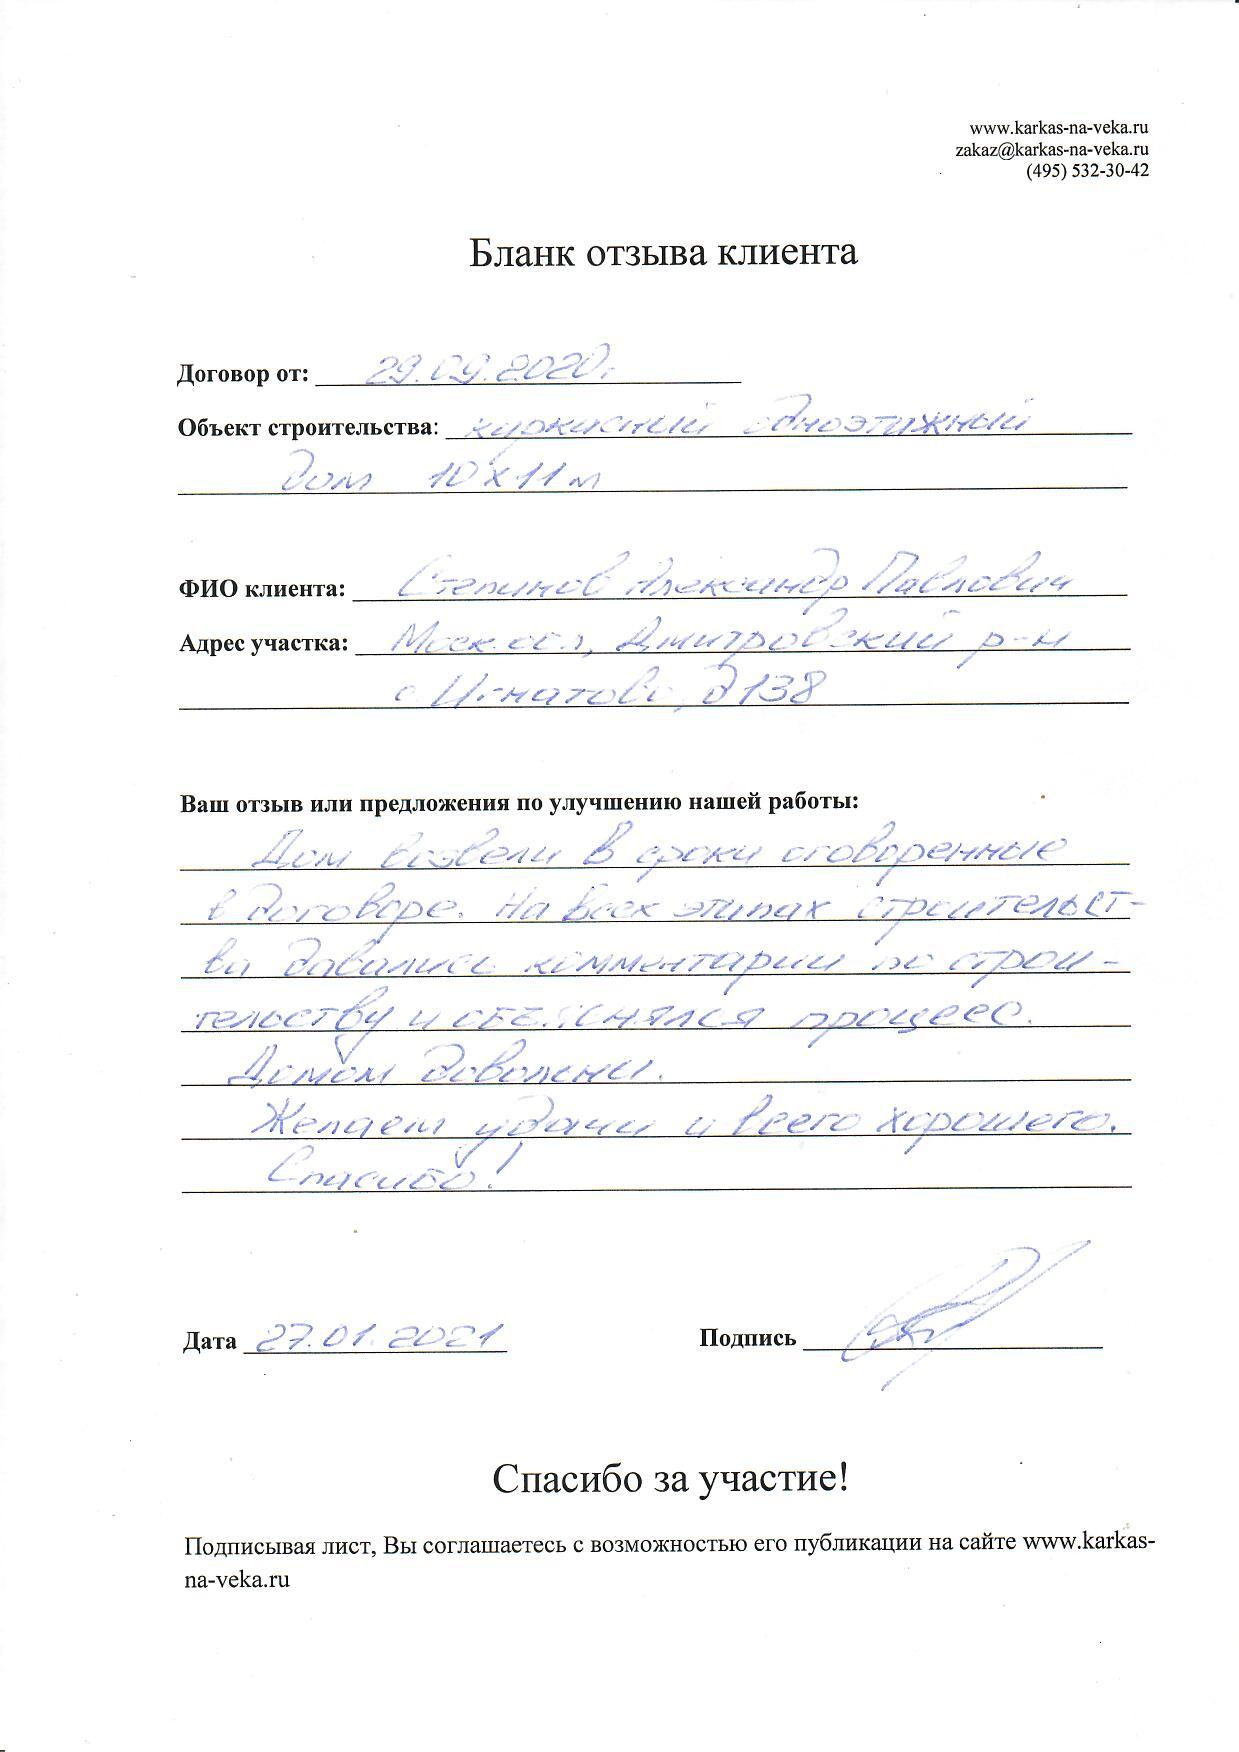 www.karkas-na-veka.ru
zakaz@karkas-na-veka.ru
(495) 532-30-42
Бланк отзыва клиента
Договор от: 29.09.2020г
Объект строительства: каркасный одноэтажный
дом 10х11м
ФИО клиента: Степанов Александр Павлович
Адрес участка: Моск. обл, Дмитровский р-н
с Игнатово, д 138
Ваш отзыв или предложения по улучшению нашей работы:
Дом возвели в сроки оговоренные
в договоре. На всех этапах строительст-
ва давались комментарии по строи-
тельству и объяснялся процесс.
Домом довольны.
Желаем удачи и всего хорошего.
Спасибо!
Дата 27.01.2021 Подпись
Спасибо за участие!
Подписывая лист, Вы соглашаетесь с возможностью его публикации на сайте www.karkas-
na-veka.ru